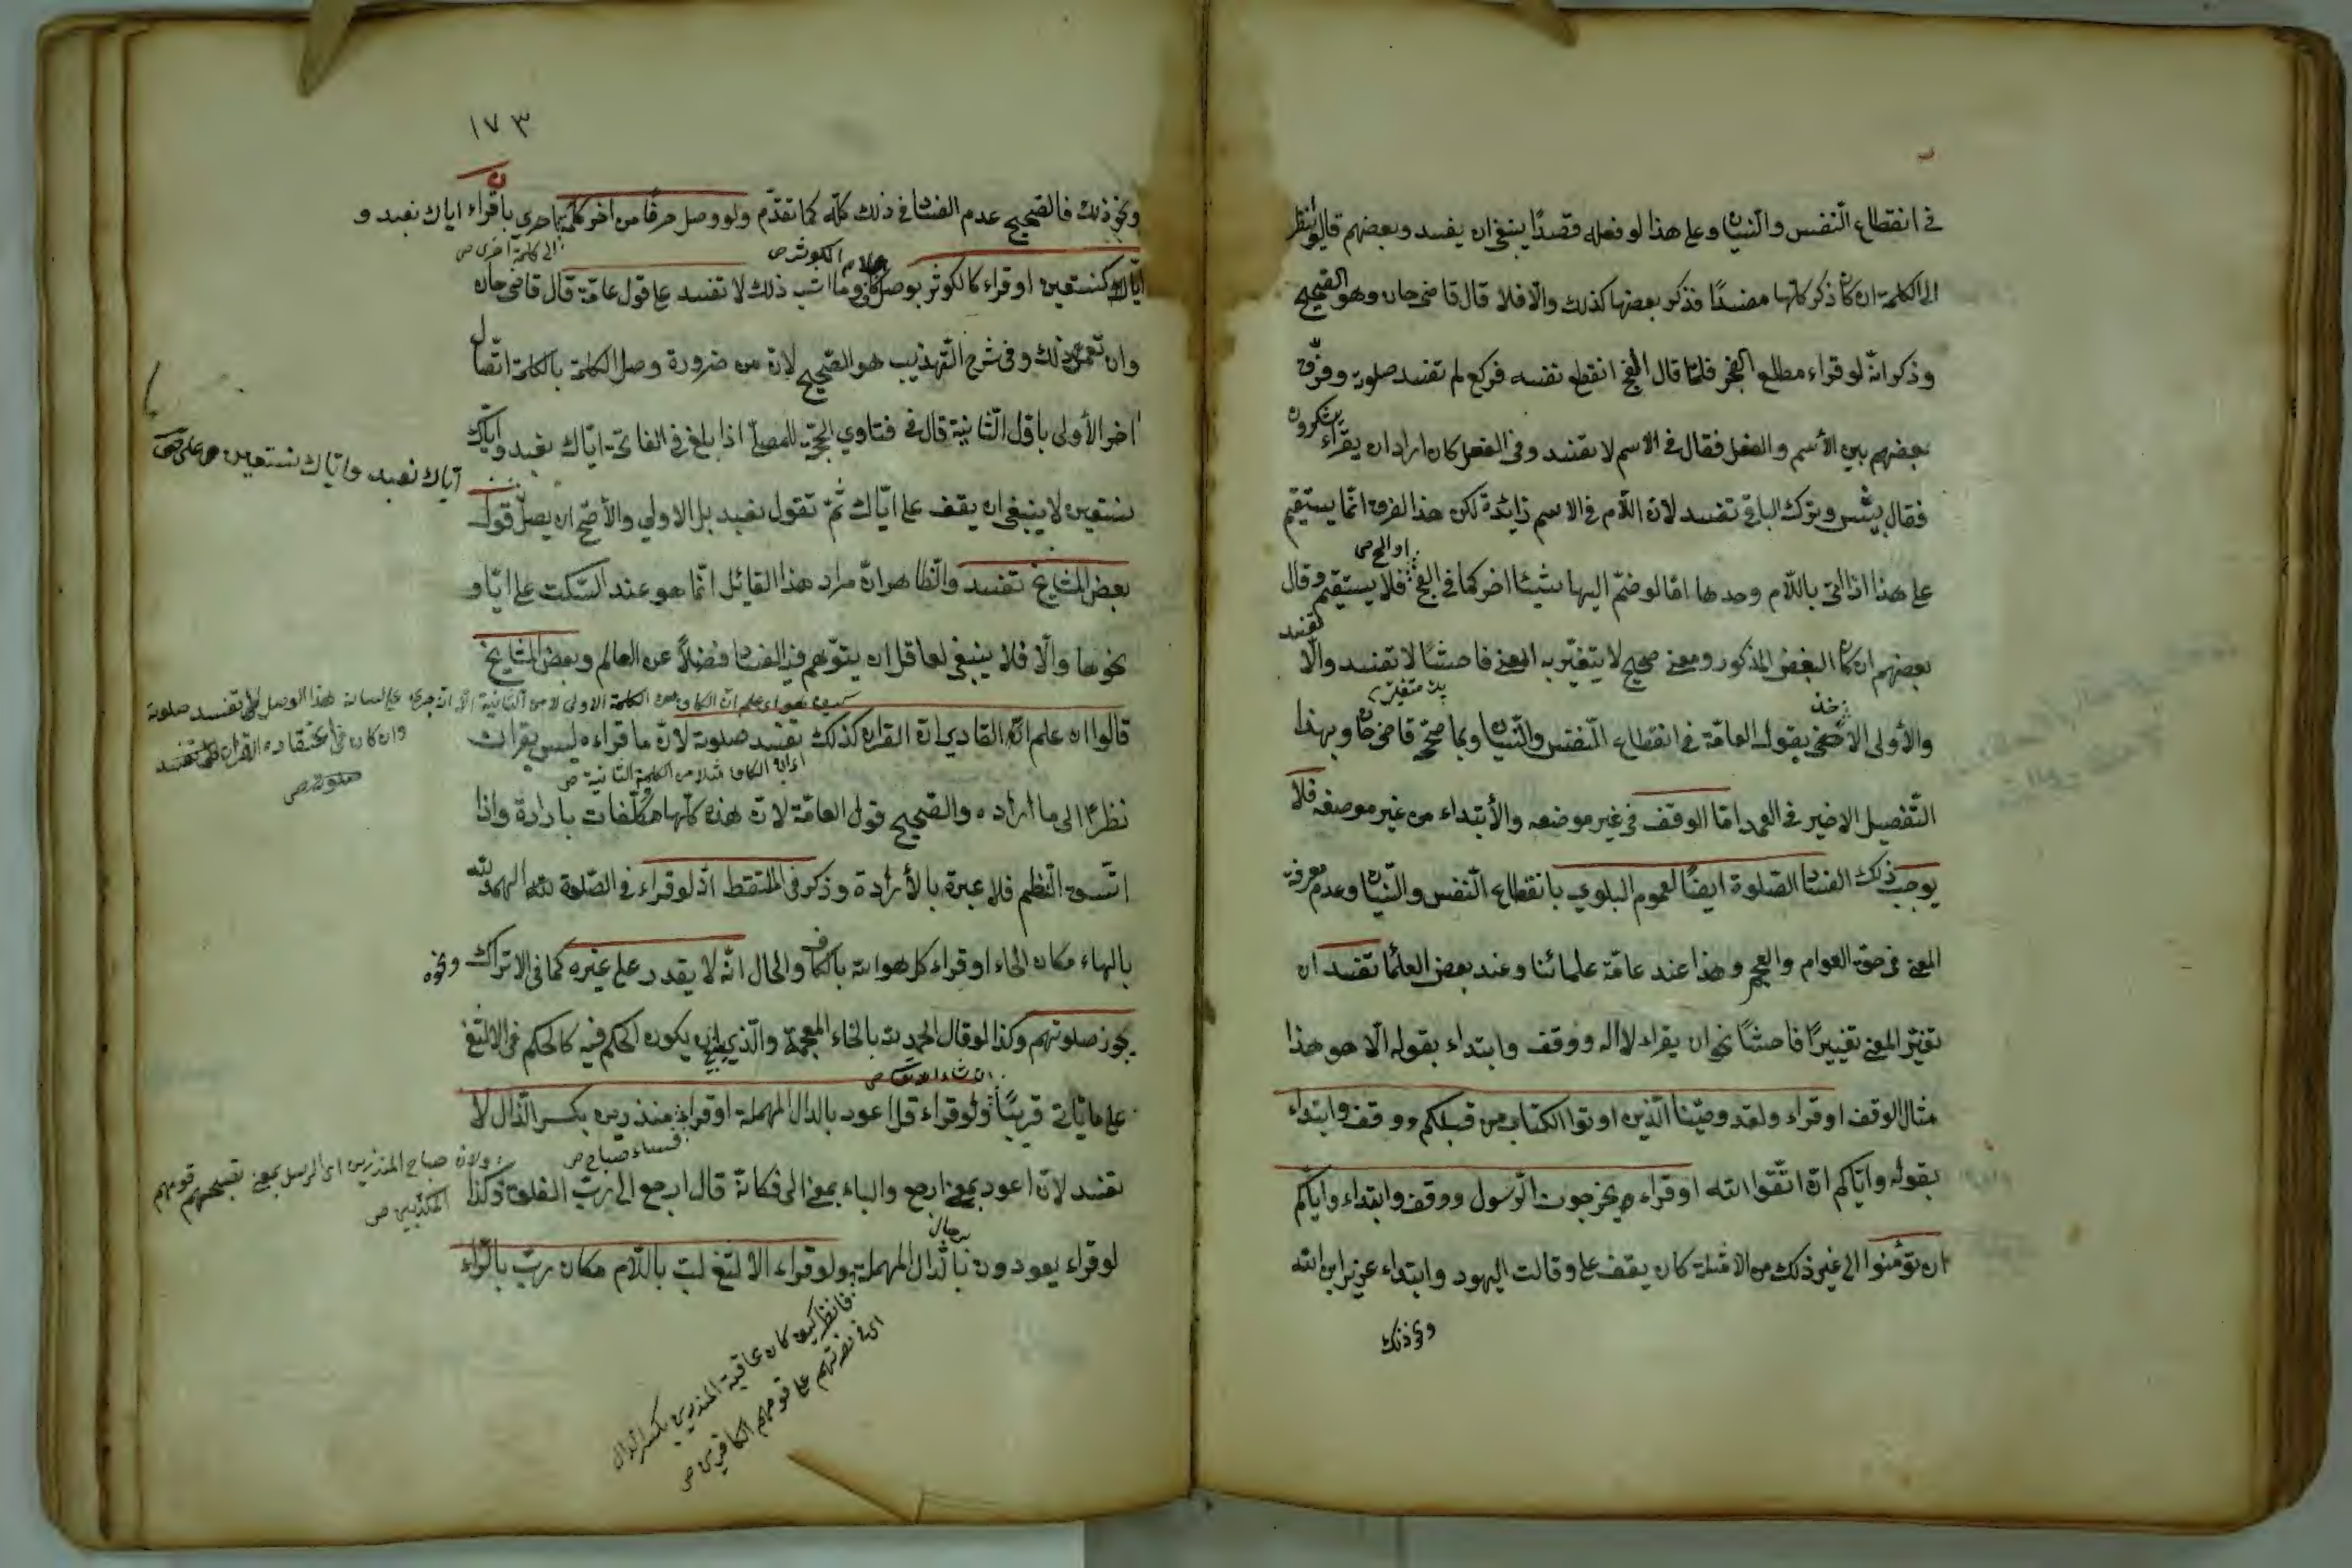 في انقطاع النفس والنسيان وعلى هذا لو فعله قصدًا ينبغي ان يفسد وبعضهم قالوا ينظر
الى الكلمة ان كان ذكر كلها مفسدًا فذكر بعضها كذلك والا فلا قال قاضي خان وهو الصحيح
وذكر انه لو قراء مطلع الفجر فلما قال الفج انقطع نفسه فركع لم تفسد صلوته وفرّق
بعضهم بين الأسم والفعل فقال في الاسم لا تفسد وفي الفعل كان اراد ان يقراء يشكرون
فقال يش وترك الباقي تفسد لان اللّام في الاسم زائدة لكن هذا الفرق انّما يستقيم
على هذا اذا اتى باللّام وحدها امّا لو ضمّ اليها شيئا اخر كما في الفج فلا يستقيم وقال
او الح صح
بعضهم ان كان البعض المذكور ومعنى صحيح لا يتغيّر به المعنى فاحشًا لا تفسد والّا تفسد
والأولى الأخذ بقول العامّة في انقطاع النّفس والنّسيان وبما صحّح قاضي خان وبهذا
التّفصيل الاخير في العمد امّا الوقف في غير موضعه والأبتداء من غير موضعه فلا
يوجب ذلك الفساد الصّلوة ايضًا لعموم البلوي بانقطاع النّفس والنّسيان وعدم معرفة
المعنى في حق العوام والعجم وهذا عند عامّة علمائنا وعند بعض العلما تفسد ان
تغيّر المعنى تغييرًا فاحشًا نحو ان يقراء لا اله ووقف وابتداء بقوله الّا هو هذا
مثال الوقف او قراء ولقد وصّينا الّذين اوتوا الكتاب من قبلكم ووقف وابتداء
بقوله وايّاكم ان اتّقوا الله او قراء يخرجون الرّسول ووقف وابتداء واياكم
ان تؤمنوا الى غير ذلك من الامثلة كان يقف على وقالت اليهود وابتداء عزير ابن الله
ونحو ذلك
١٧٣
ونحو ذلك فالصّحيح عدم الفساد في ذلك كلّه كما تقدّم ولو وصل حرفًا من اخر كلمة باخرى بان قراء اياك نعبد و
الى كلمة اخرى صح
الكوثر صح
ايّاك كنستعين او قراء كالكوثر بوصل وما اشبه ذلك لا تفسد على قول عامّة قال قاضي خان
وان تعمّد ذلك وفي شرح التّهذيب هو الصّحيح لان من ضرورة وصل الكلمة بالكلمة اتّصال
اخر الأولى باوّل الثّانية قال في فتاوي الحجّة المصلّي اذا بلغ في الفاتحة ايّاك نعبد وايّاك
اياك نعبد واياك نستعين صح
نستعين لا ينبغي ان يقف على ايّاك ثمّ تقول نعبد بل الاولى والأصحّ ان يصل قول
بعض المشايخ تفسد والظاهر انّ مراد هذا القائل انّما هو عند السّكت على ايّا و
نحوها والّا فلا ينبغي لعاقل ان يتوّهم فيه الفساد فضلًا عن العالم وبعض المشايخ
علم ان الكاف من الكلمة الاولى لا من الثانية الّا انّه جرى على لسانه هذا الوصل لا تفسد صلوته
وان كان في اعتقاده القرآن كذلك تفسد
صلوته صح
قالوا ان علم القاري ان القران كذلك تفسد صلوته لانّ ما قراءه ليس بقران
اي ان الكاف مثلا من الكلمة الثانية صح
نظرًا الى ما اراده والصّحيح قول العامّة لانّ هذه كلّها تكلّفات باردة واذا
اتّسق النّظم فلا عبرة بالأرادة وذكر في الملتقط انّه لو قراء في الصّلوة الهمد لله
بالهاء مكان الحاء او قراء كل هو الله بالكاف والحال انّه لا يقدر على غيره كما في الاتراك ونحوه
يجوز صلوتهم وكذا لو قال الخمد لله بالخاء المعجمة والّذي ينبغي ان يكون الحكم فيه كالحكم في الالثغ
ان شاء الله تعالى صح
على ما ياتي قريبًا ولو قراء قل اعود بالدال المهملة او قراء منذرين بكسر الذّال لا
فساء صباح صح
تفسد لانّ اعود بمعنى ارجع والباء بمعنى الى فكانّه قال ارجع الى ربّ الفلق وكذا
ولان صباح المنذرين اي الرسل بمعنى تصبيحهم قومهم
المكذّبين صح
لو قراء يعودون برجال بالدّال المهملة ولو قراء الالثغ لب باللّام مكان ربّ بالرّاء
فانظر كيف كان عاقبة المنذرين بكسر الذال
اي في نصرتهم على قومهم الكافرين صح